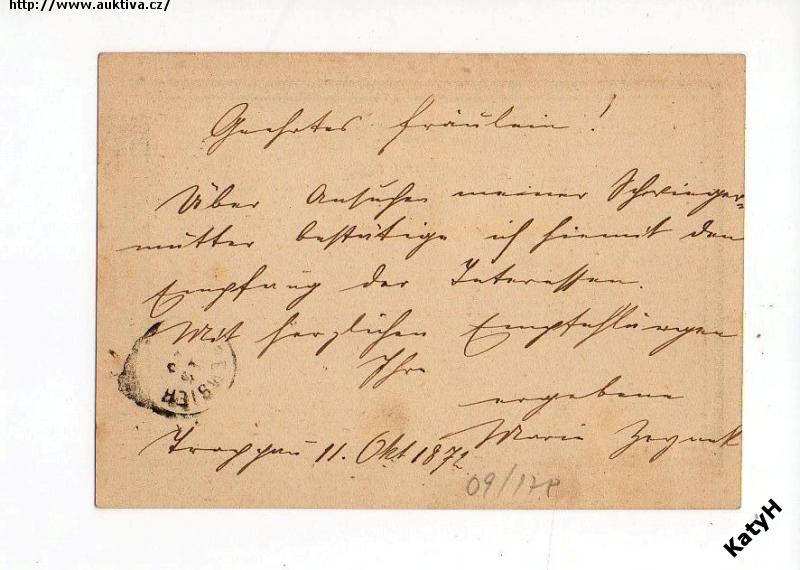 http://www.auktiva.cz/
Geehrtes Fräulein!
Über Ansuchen meiner Schwieger=
mutter bestätige ich hiemit den
Empfang der Interessen.
Mit herzlichen Empfehlungen
Ihre
ergebene
Marie
Troppau 11. Okt 1872
09/178
KatyH